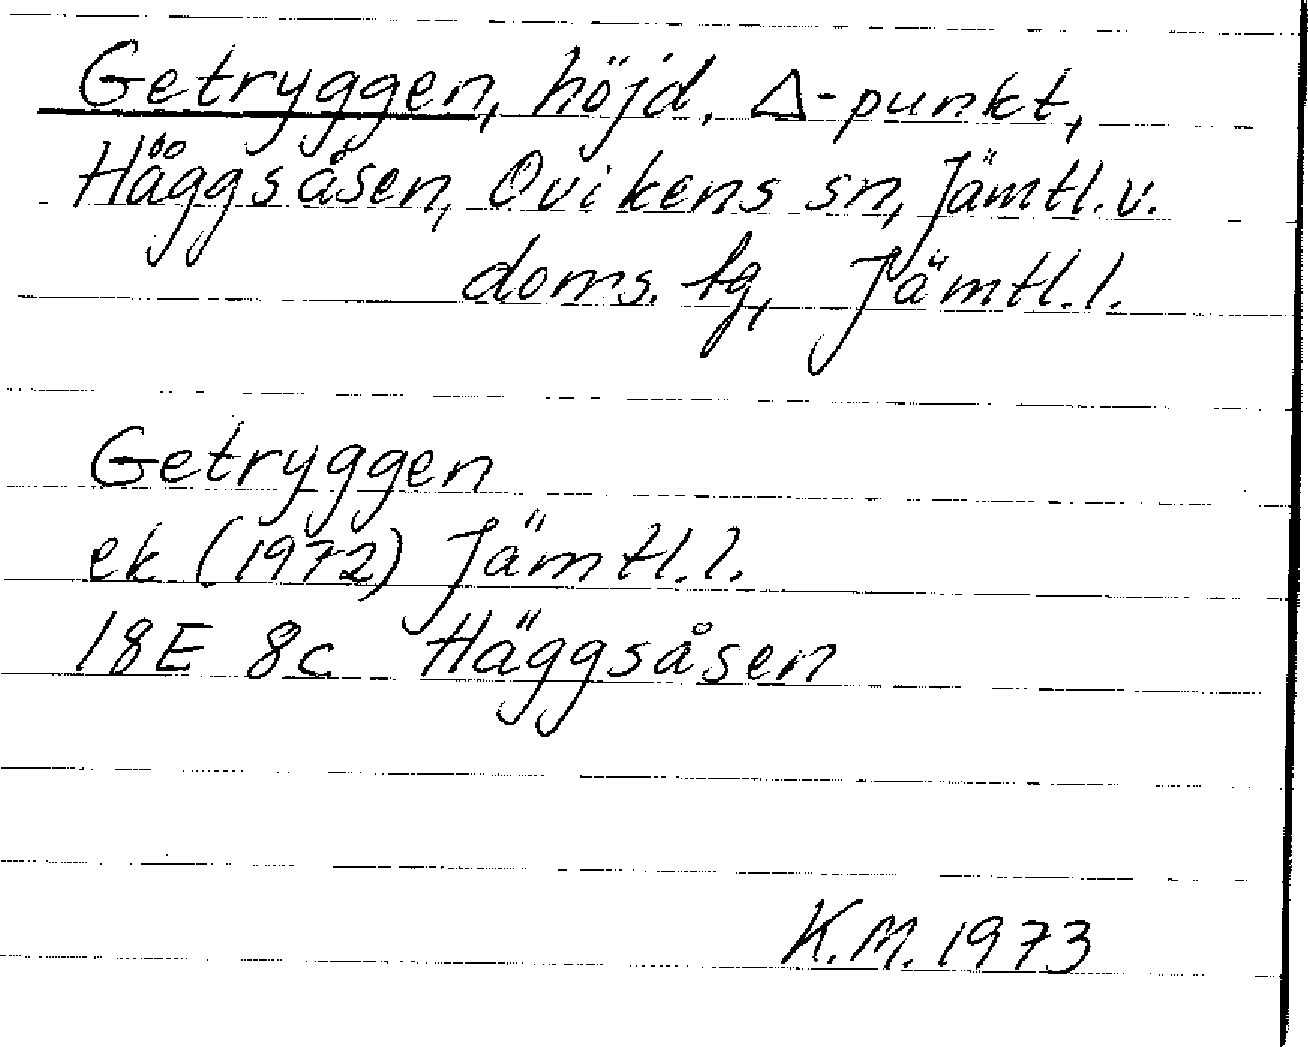 Getryggen, höjd, Δ-punkt,
Häggsåsen, Ovikens sn, Jämtl. v.
doms. tg, Jämtl. l.
Getryggen
ek (1972) Jämtl. l.
18E 8c Häggsåsen
K.M. 1973